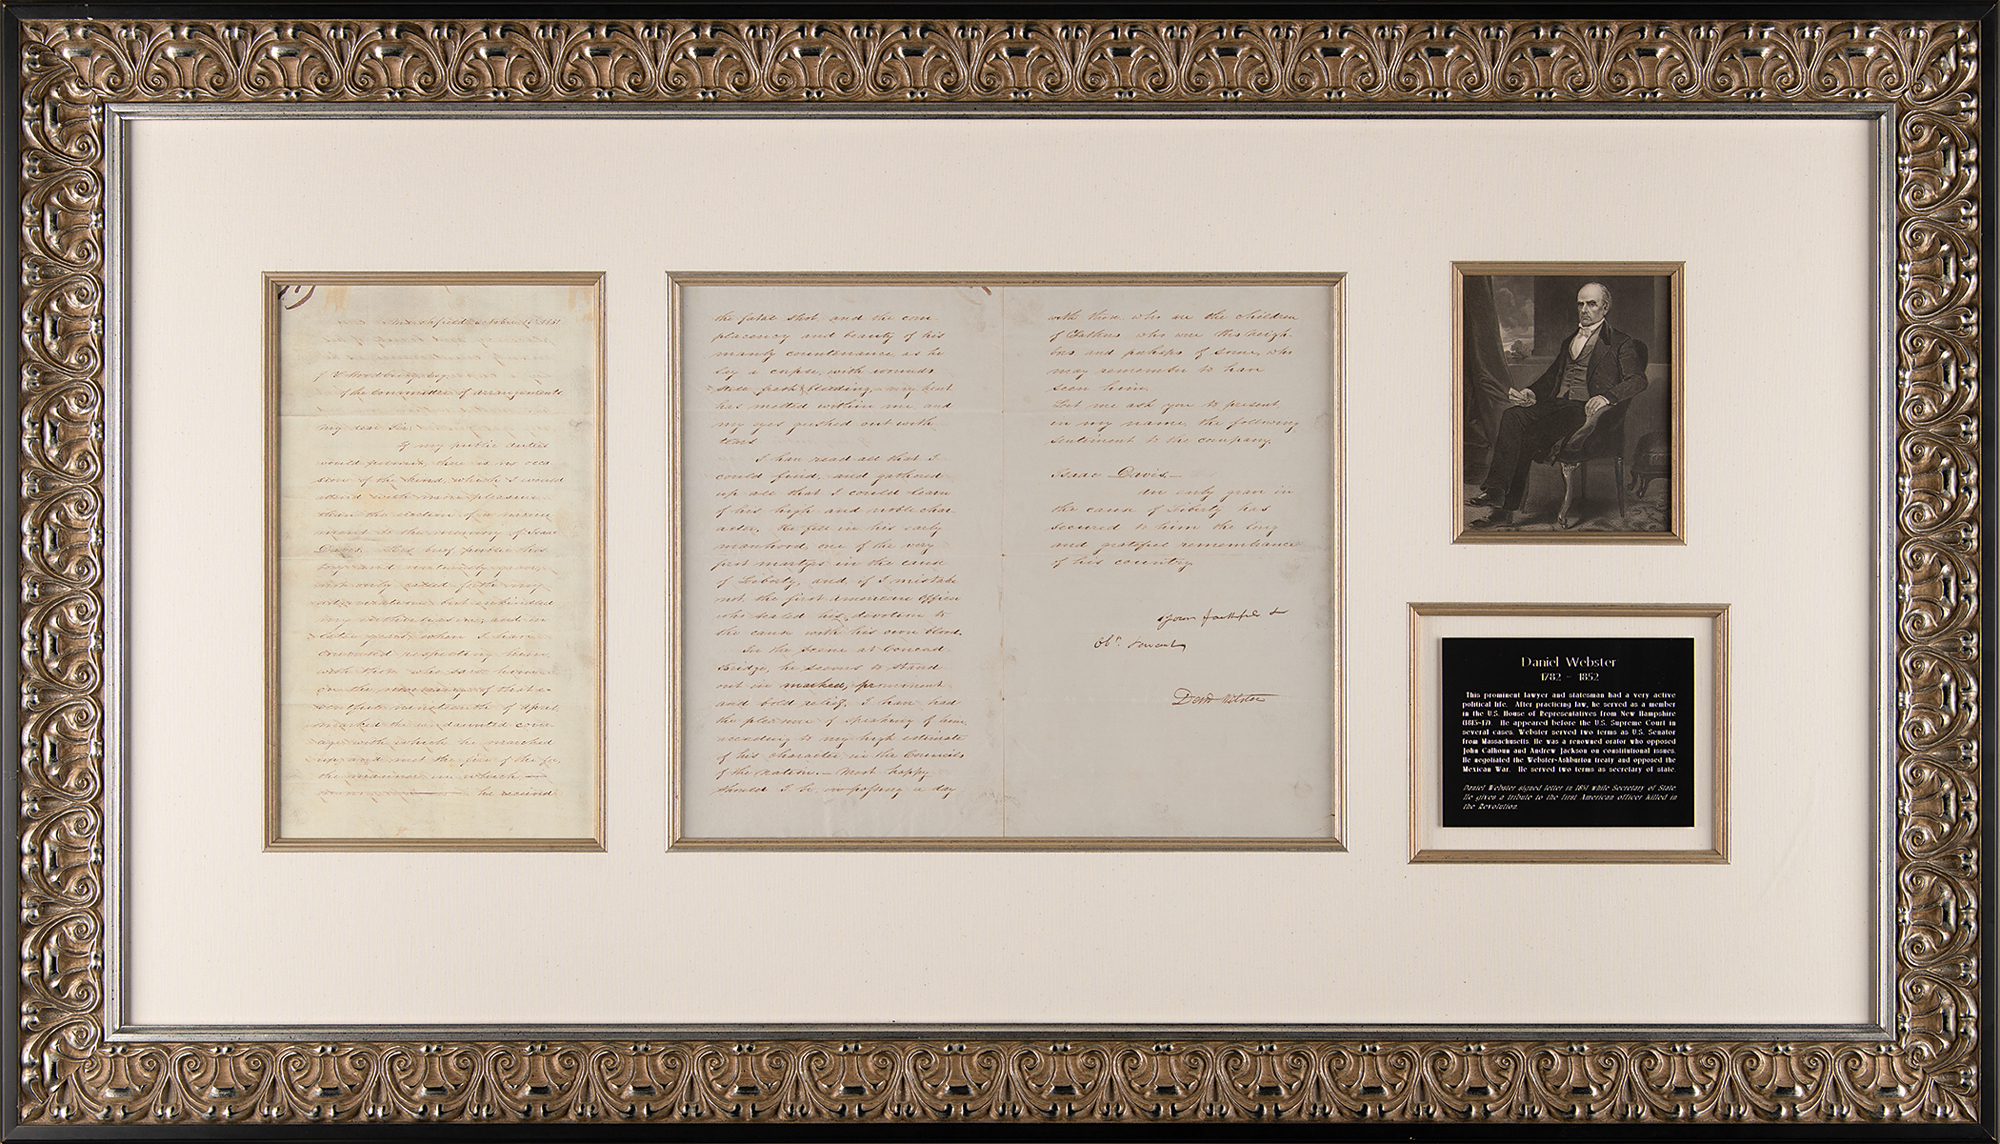 Marshfield October 1851
of the committee of arrangements
My dear Sir,
If my public duties
would permit, there is no occa
sion of the kind, which I would
attend with more pleasure
than the erection of a monu
ment to the memory of Isaac
Davis. His brief public his
not only excited
veneration, but enkindled
my enthusiasm, and in
later years, when I have
conversed respecting him,
with those who
on the morning of that e-
ventful nineteenth of April
marked the undaunted cour
age with which he marched
up and met the fire of the foe,
the manner in which
he received
the fatal shot, and the com
placency and beauty of his
manly countenance, as he
lay a corpse, with wounds
still fresh & bleeding, my heart
has melted within me, and
my eyes gushed out with
tears.
I have read all that I
could find, and gathered
up all that I could learn
of his high and noble char
acter. He fell in his early
manhood, one of the very
first martyrs in the cause
of Liberty, and, if I mistake
not, the first American Officer
who sealed his devotion to
the cause with his own blood.
In the scene at Concord
Bridge, he seems to stand
out in marked, prominent
and bold relief. I have had
the pleasure of speaking of him,
according to my high estimate
of his character, in the Councils
of the Nation. Most happy
should I be, in passing a day
with those who are the children
of Fathers who were his neigh-
bors and perhaps of some, who
may remember to have
seen him.
Let me ask you to present,
in my name, the following
sentiment to the company.
Isaac Davis,—
An early grave in
the cause of Liberty has
secured to him the long
and grateful remembrance
of his country.
Your faithful &
Obt. Servant,
Danl Webster
Daniel Webster
1782 - 1852
This prominent lawyer and statesman had a very active
political life. After practicing law, he served as a member
in the U.S. House of Representatives from New Hampshire
(1813-17). He appeared before the U.S. Supreme Court in
several cases. Webster served two terms as U.S. Senator
from Massachusetts. He was a renowned orator who opposed
John Calhoun and Andrew Jackson on constitutional issues.
He negotiated the Webster-Ashburton treaty and opposed the
Mexican War. He served two terms as secretary of state.
Daniel Webster signed letter in 1851 while Secretary of State
He gives a tribute to the first American officer killed in
the Revolution.